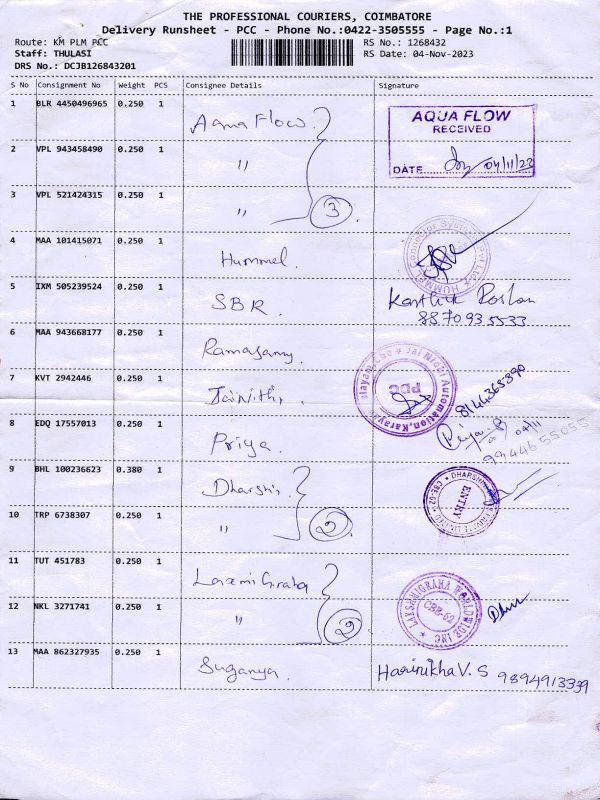 THE PROFESSIONAL COURIERS, COIMBATORE
Delivery Runsheet - PCC - Phone No.:0422-3505555 - Page No.:1
Route: KM PLM PCC RS No.: 1268432
Staff: THULASI RS Date: 04-Nov-2023
DRS No.: DCJB126843201
S No Consignment No Weight PCS Consignee Details Signature
1 BLR 4450496965 0.250 1 Aqua Flow. AQUA FLOW
RECEIVED
2 VPL 943458490 0.250 1 "
DATE 04/11/23
3 VPL 521424315 0.250 1 " 3
4 MAA 101415071 0.250 1 Hummel.
5 IXM 505239524 0.250 1 SBR. Karthik Roshan
8870935533
6 MAA 943668177 0.250 1 Ramasamy.
7 KVT 2942446 0.250 1 Jainithi, PDC
8 EDQ 17557013 0.250 1 Priya. Priya.P 04/11
9944655055
9 BHL 100236623 0.380 1 Dharshi. ENTRY
10 TRP 6738307 0.250 1 " 2
11 TUT 451783 0.250 1 Laxmi Graha
LAKSHMIGRAHA WORLDWIDE INC
CBE-62
12 NKL 3271741 0.250 1 " 2
13 MAA 862327935 0.250 1 Suganya. Harinikha V. S 9894913339